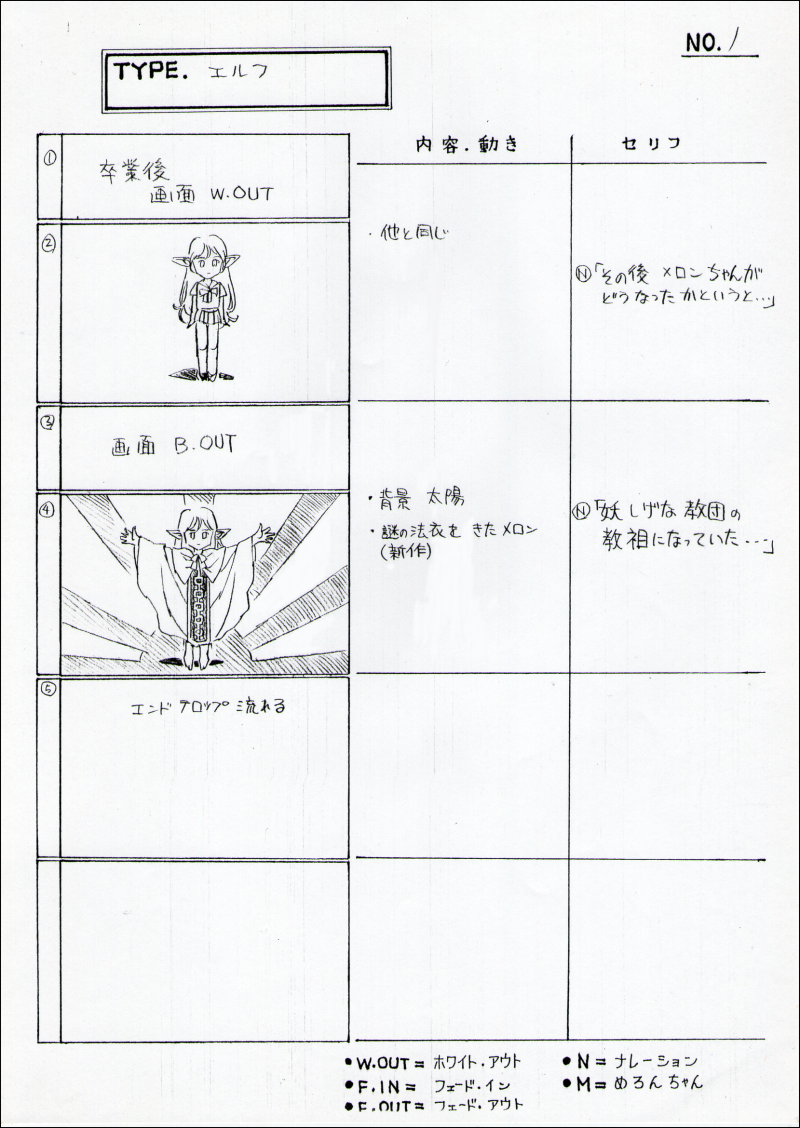 NO. 1
TYPE. エルフ
内容.動き
セリフ
①
卒業後
画面 W.OUT
②
・他と同じ
Ⓝ「その後 メロンちゃんが
どうなったかというと…」
③
画面 B.OUT
④
・背景 太陽
・謎の法衣を きたメロン
(新作)
Ⓝ「妖しげな教団の
教祖になっていた…」
⑤
エンドテロップ流れる
●W.OUT= ホワイト.アウト
●F.IN= フェード.イン
●F.OUT= フェード.アウト
●N= ナレーション
●M= めろんちゃん